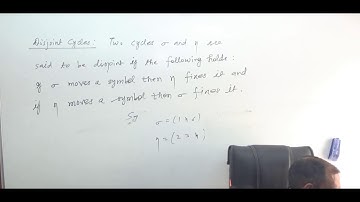 Disjoint Cycles: Two cycles σ and η are
said to be disjoint if the following holds:
if σ moves a symbol then η fixes it and
if η moves a symbol then σ fixes it.
Eg σ = (1
η = (2